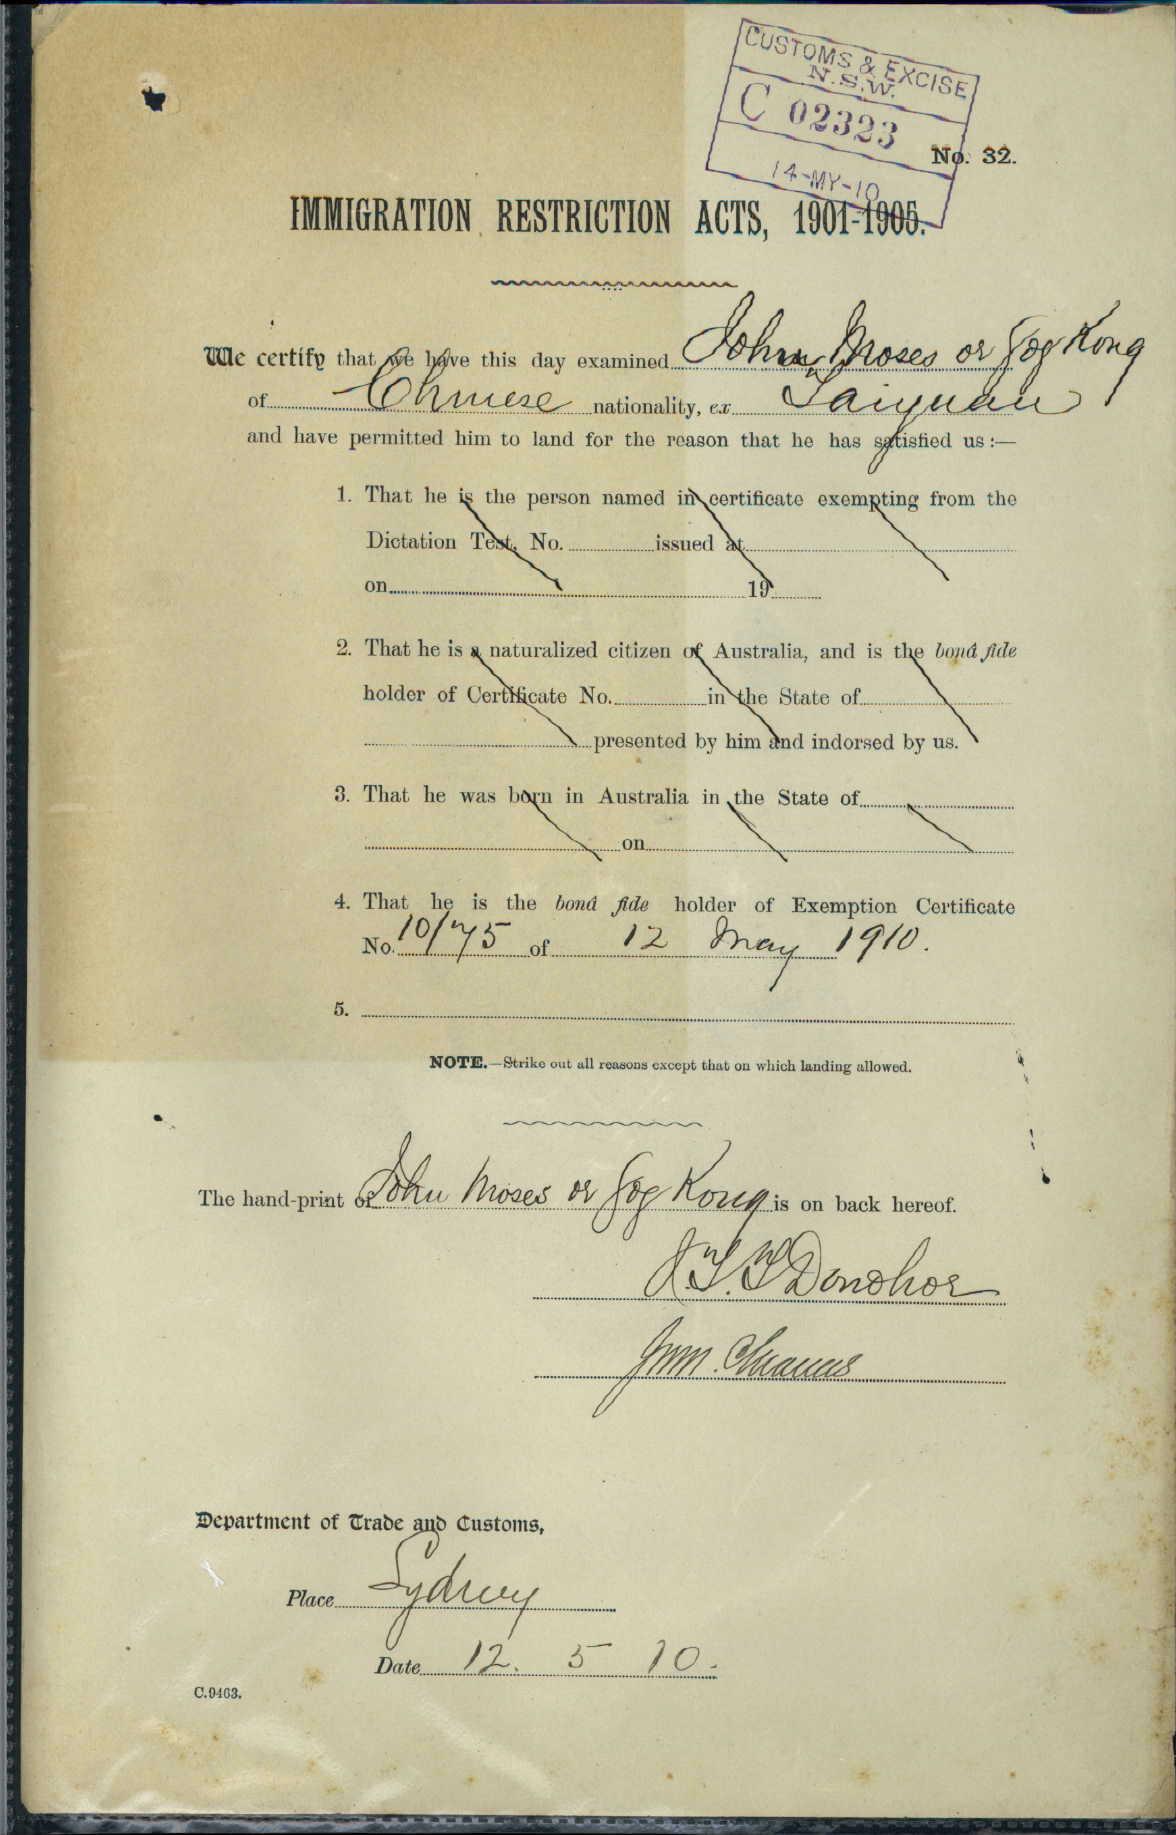 CUSTOMS & EXCISE
N.S.W.
C 02323
14-MY-10
No. 32.
IMMIGRATION RESTRICTION ACTS, 1901-1905.
We certify that we have this day examined John Moses or Gog Kong
of Chinese nationality, ex Taiyuan
and have permitted him to land for the reason that he has satisfied us:—
1. That he is the person named in certificate exempting from the
Dictation Test, No. issued at
on 19
2. That he is a naturalized citizen of Australia, and is the bonâ fide
holder of Certificate No. in the State of
presented by him and indorsed by us.
3. That he was born in Australia in the State of
on
4. That he is the bonâ fide holder of Exemption Certificate
No. 10/75 of 12 May 1910.
5.
NOTE.—Strike out all reasons except that on which landing allowed.
The hand-print of John Moses or Gog Kong is on back hereof.
J.T.T. Donohoe
Department of Trade and Customs,
Place Sydney
Date 12. 5 10.
C.9463.